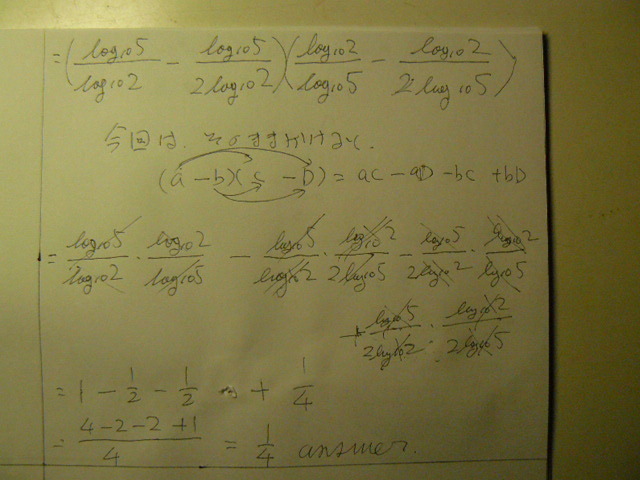 = (log₁₀5/log₁₀2 - log₁₀5/2log₁₀2)(log₁₀2/log₁₀5 - log₁₀2/2log₁₀5)
今回は、そのままかけよく.
(a - b)(c - D) = ac - aD - bc + bD
= log₁₀5/log₁₀2 · log₁₀2/log₁₀5 - log₁₀5/log₁₀2 · log₁₀2/2log₁₀5 - log₁₀5/2log₁₀2 · log₁₀2/log₁₀5
+ log₁₀5/2log₁₀2 · log₁₀2/2log₁₀5
= 1 - 1/2 - 1/2 + 1/4
= 4-2-2+1/4 = 1/4 answer.